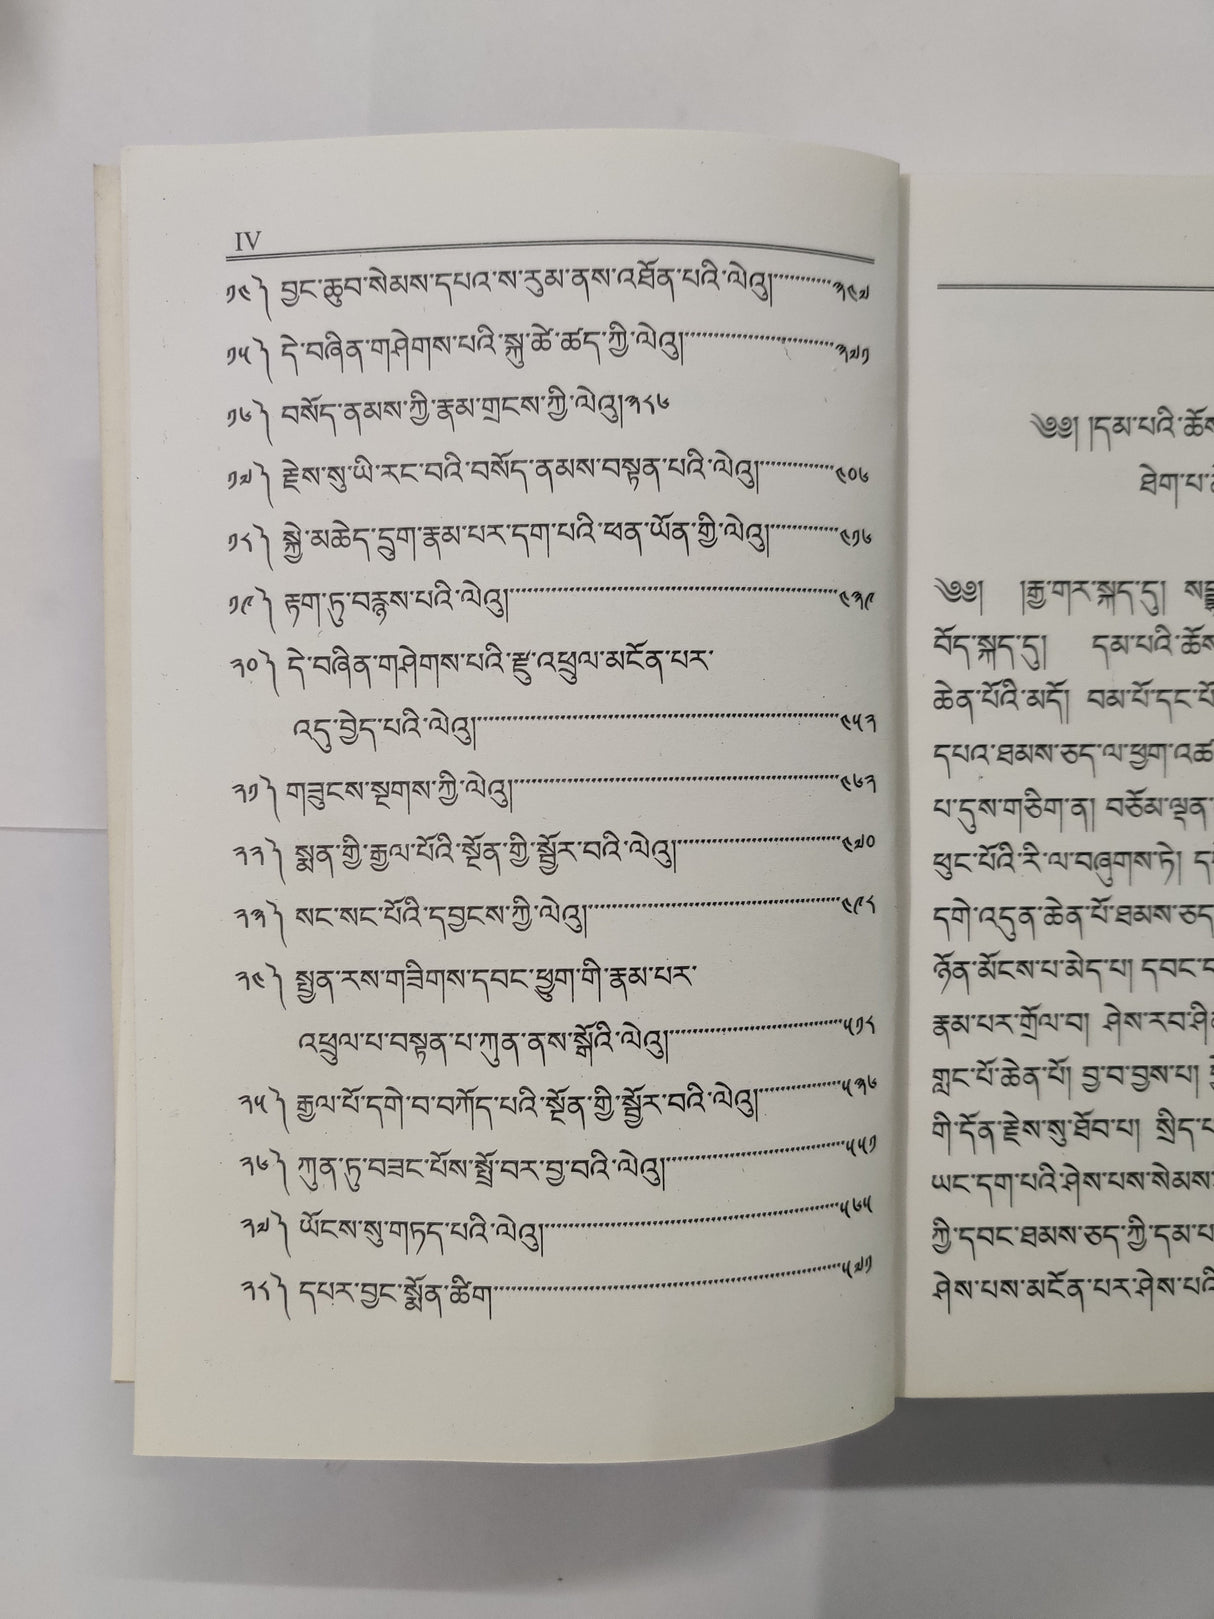 IV
༡༤༽ བྱང་ཆུབ་སེམས་དཔའ་ས་རུམ་ནས་འཐོན་པའི་ལེའུ།……༣༤༧
༡༥༽ དེ་བཞིན་གཤེགས་པའི་སྐུ་ཚེ་ཚད་ཀྱི་ལེའུ།……༣༧༡
༡༦༽ བསོད་ནམས་ཀྱི་རྣམ་གྲངས་ཀྱི་ལེའུ།༣༨༦
༡༧༽ རྗེས་སུ་ཡི་རང་བའི་བསོད་ནམས་བསྟན་པའི་ལེའུ།……༤༠༦
༡༨༽ སྐྱེ་མཆེད་དྲུག་རྣམ་པར་དག་པའི་ཕན་ཡོན་གྱི་ལེའུ།……༤༡༦
༡༩༽ རྟག་ཏུ་བརྙས་པའི་ལེའུ།……༤༣༩
༢༠༽ དེ་བཞིན་གཤེགས་པའི་རྫུ་འཕྲུལ་མངོན་པར་
འདུ་བྱེད་པའི་ལེའུ།……༤༥༢
༢༡༽ གཟུངས་སྔགས་ཀྱི་ལེའུ།……༤༦༢
༢༢༽ སྨན་གྱི་རྒྱལ་པོའི་སྔོན་གྱི་སྦྱོར་བའི་ལེའུ།……༤༧༠
༢༣༽ སང་སང་པོའི་དབྱངས་ཀྱི་ལེའུ།……༤༩༨
༢༤༽ སྤྱན་རས་གཟིགས་དབང་ཕྱུག་གི་རྣམ་པར་
འཕྲུལ་པ་བསྟན་པ་ཀུན་ནས་སྒོའི་ལེའུ།……༥༡༨
༢༥༽ རྒྱལ་པོ་དགེ་བ་བཀོད་པའི་སྔོན་གྱི་སྦྱོར་བའི་ལེའུ།……༥༣༦
༢༦༽ ཀུན་ཏུ་བཟང་པོས་སྤྲོ་བར་བྱ་བའི་ལེའུ།……༥༥༡
༢༧༽ ཡོངས་སུ་གཏད་པའི་ལེའུ།……༥༦༥
༢༨༽ དཔར་བྱང་སྨོན་ཚིག……༥༧༡
༄༅། །དམ་པའི་ཆོས
ཐེག་པ
༄༅། །རྒྱ་གར་སྐད་དུ།
བོད་སྐད་དུ། དམ་པའི་ཆོས
ཆེན་པོའི་མདོ། བམ་པོ་དང་པོ
དཔའ་ཐམས་ཅད་ལ་ཕྱག་འཚ
པ་དུས་གཅིག་ན། བཅོམ་ལྡན་
ཕུང་པོའི་རི་ལ་བཞུགས་ཏེ།
དགེ་འདུན་ཆེན་པོ་ཐམས་ཅད
ཉོན་མོངས་པ་མེད་པ། དབང་
རྣམ་པར་གྲོལ་བ། ཤེས་རབ་
གླང་པོ་ཆེན་པོ། བྱ་བ་བྱས་པ།
གི་དོན་རྗེས་སུ་ཐོབ་པ། སྲིད་
ཡང་དག་པའི་ཤེས་པས་སེམས་
ཀྱི་དབང་ཐམས་ཅད་ཀྱི་དམ་པ
ཤེས་པས་མངོན་པར་ཤེས་པའི